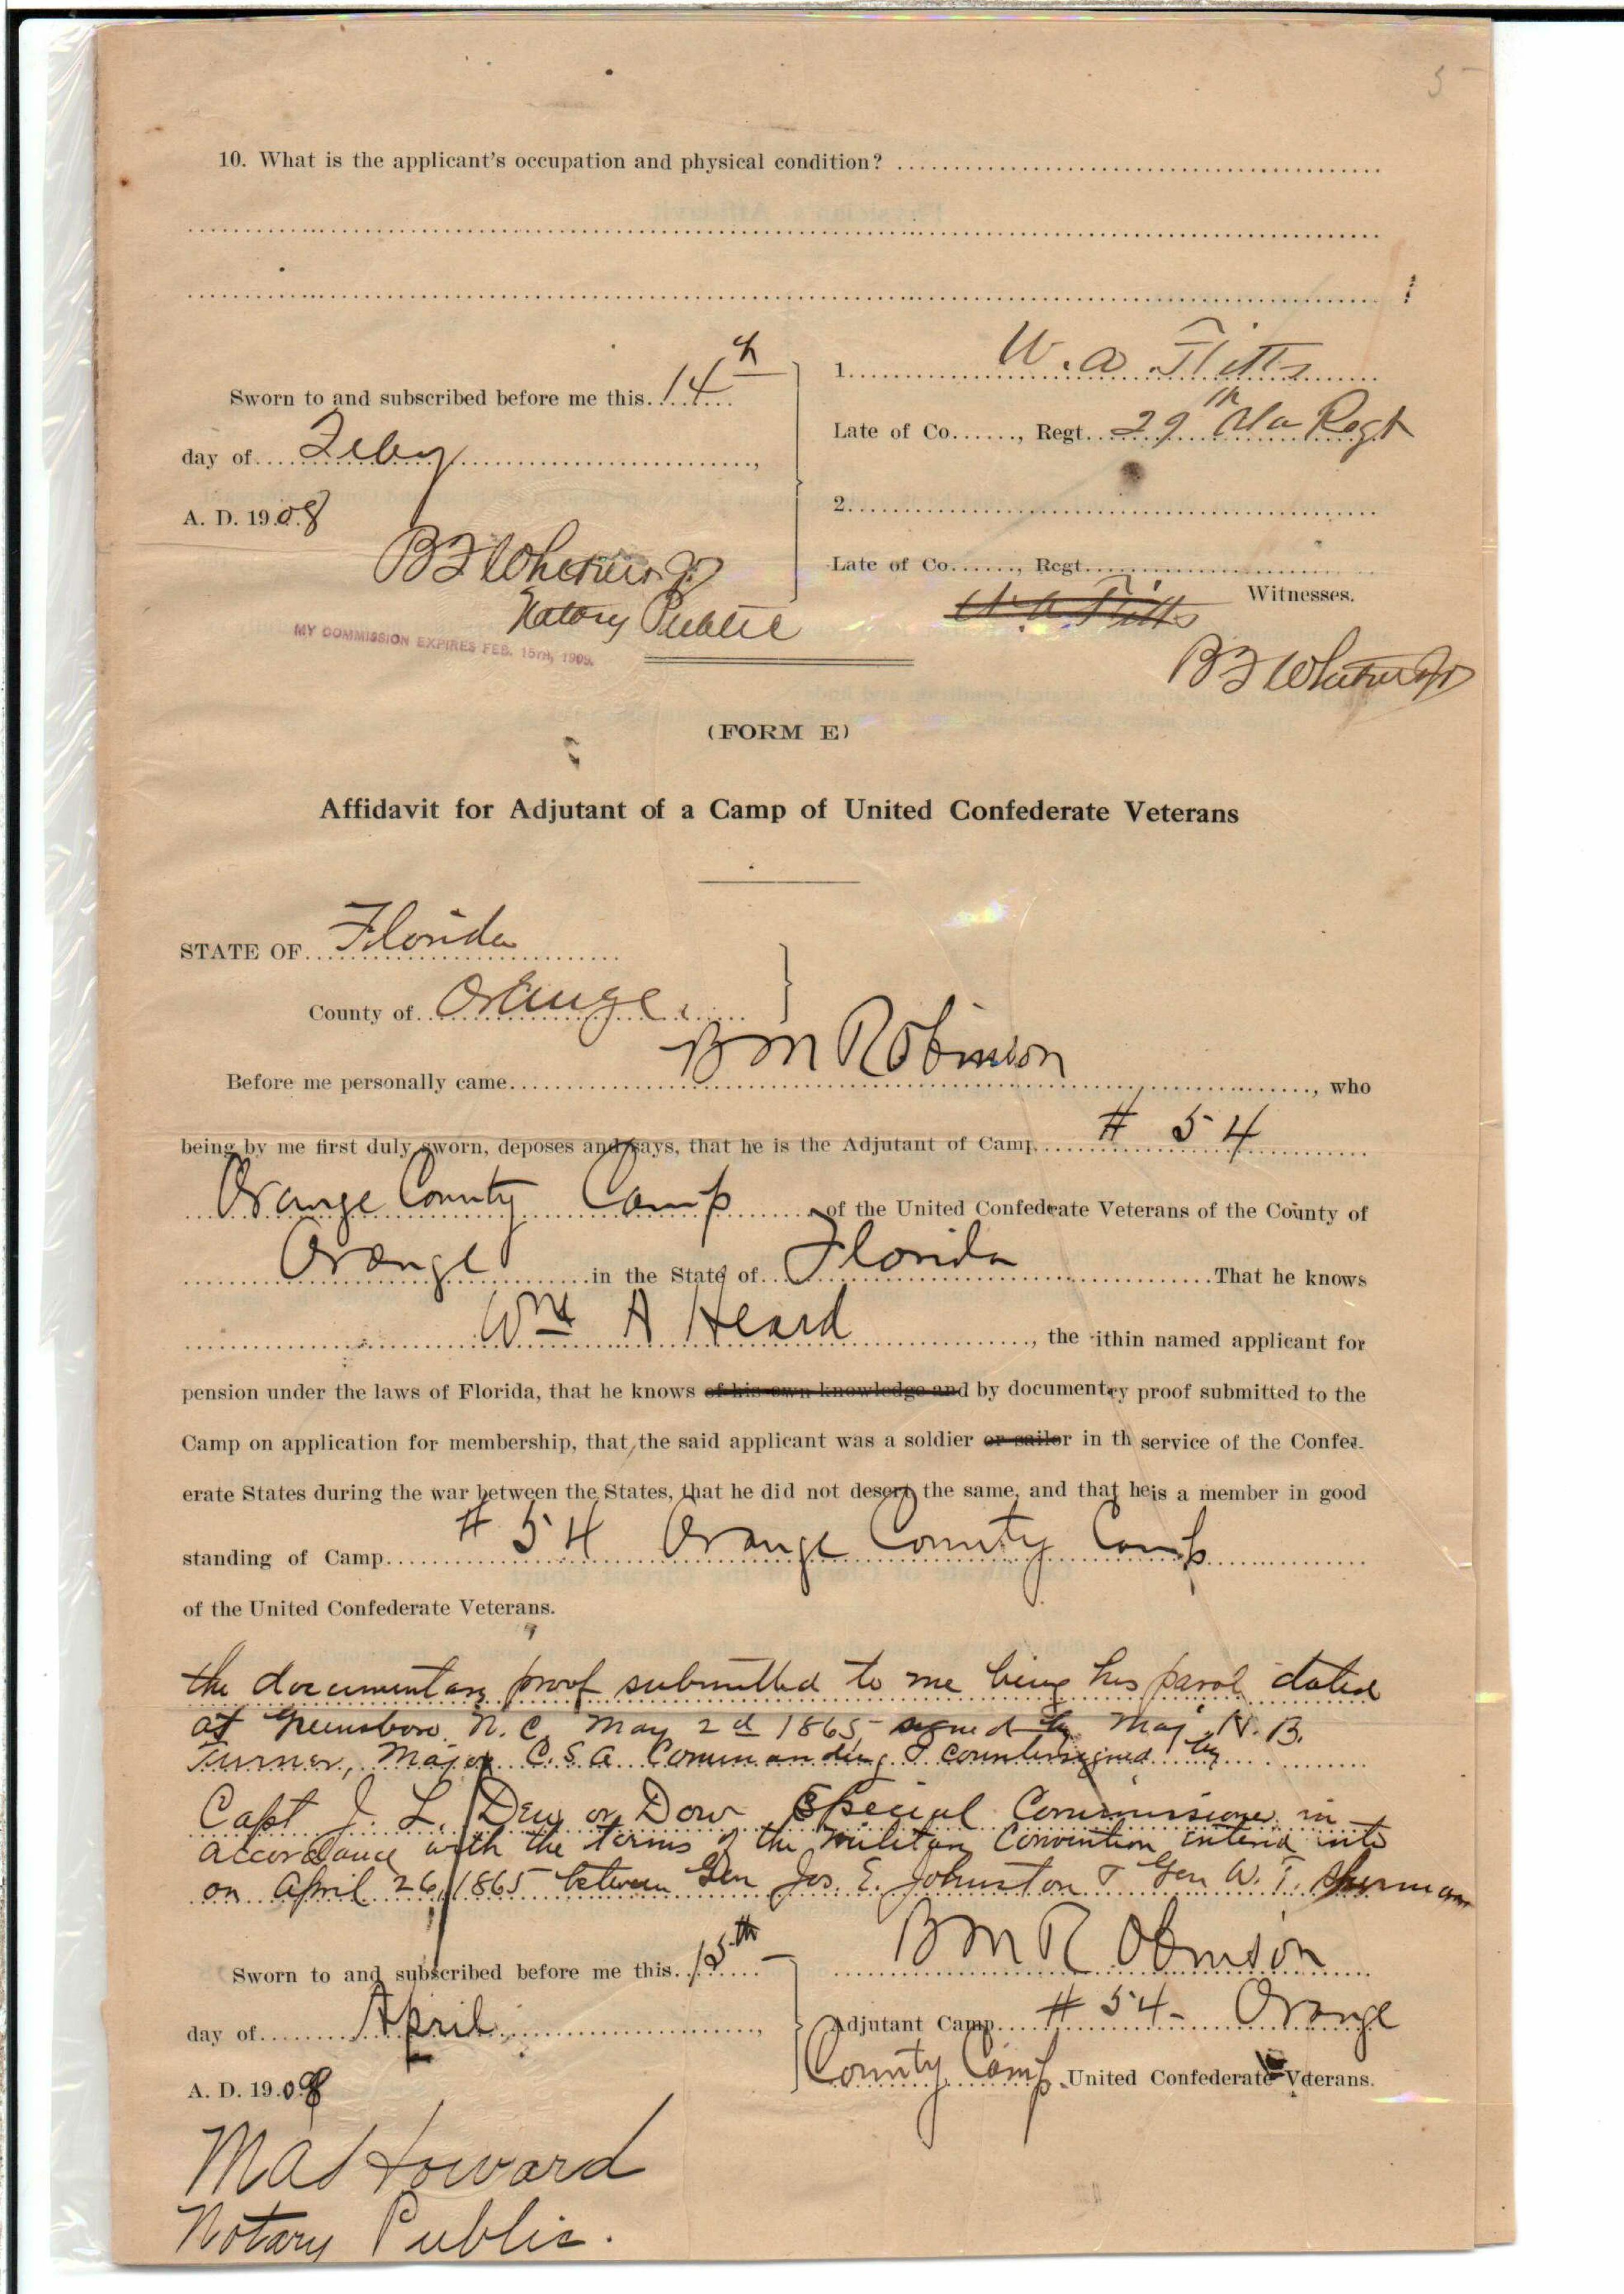 5
10. What is the applicant's occupation and physical condition?
Sworn to and subscribed before me this 14th
day of Feby,
A. D. 1908
B F Whitner Jr
Notary Public
MY COMMISSION EXPIRES FEB. 15TH, 1909.
1. W. A. Fitts
Late of Co......, Regt. 29th Regt
2.
Late of Co......, Regt.
W. A. Fitts
Witnesses.
B F Whitner Jr
(FORM E)
Affidavit for Adjutant of a Camp of United Confederate Veterans
STATE OF Florida
County of Orange
Before me personally came B M Robinson, who
being by me first duly sworn, deposes and says, that he is the Adjutant of Camp # 54
Orange County Camp of the United Confederate Veterans of the County of
Orange in the State of Florida That he knows
Wm A Heard, the ithin named applicant for
pension under the laws of Florida, that he knows of his own knowledge and by documentry proof submitted to the
Camp on application for membership, that the said applicant was a soldier or sailor in th service of the Confed-
erate States during the war between the States, that he did not desert the same, and that he is a member in good
standing of Camp # 54 Orange County Camp
of the United Confederate Veterans.
the documentary proof submitted to me being his parol dated
at Greensboro N. C. May 2d 1865 signed by Maj N. B.
Turner, Major C.S.A. Commanding & countersigned by
Capt J. L. Dew or Dow Special Commissioner in
accordance with the terms of the Military Convention entered into
on April 26, 1865 between Gen Jos. E. Johnston & Gen W. T. Sherman
Sworn to and subscribed before me this 15th
day of April,
A. D. 1908
B M Robinson
Adjutant Camp # 54 - Orange
County Camp United Confederate Veterans.
M A Howard
Notary Public.